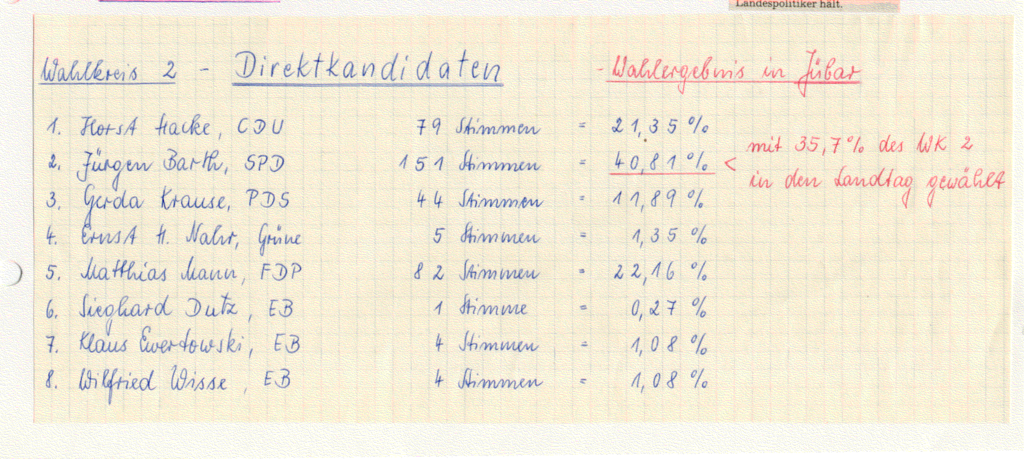 Landespolitiker hält.
Wahlkreis 2 - Direktkandidaten - Wahlergebnis in Jübar
1. Horst Hacke, CDU 79 Stimmen = 21,35 %
2. Jürgen Barth, SPD 151 Stimmen = 40,81 % < mit 35,7 % des WK 2
in den Landtag gewählt
3. Gerda Krause, PDS 44 Stimmen = 11,89 %
4. Ernst H. Nahr, Grüne 5 Stimmen = 1,35 %
5. Matthias Mann, FDP 82 Stimmen = 22,16 %
6. Sieghard Dutz, EB 1 Stimme = 0,27 %
7. Klaus Ewertowski, EB 4 Stimmen = 1,08 %
8. Wilfried Wisse, EB 4 Stimmen = 1,08 %